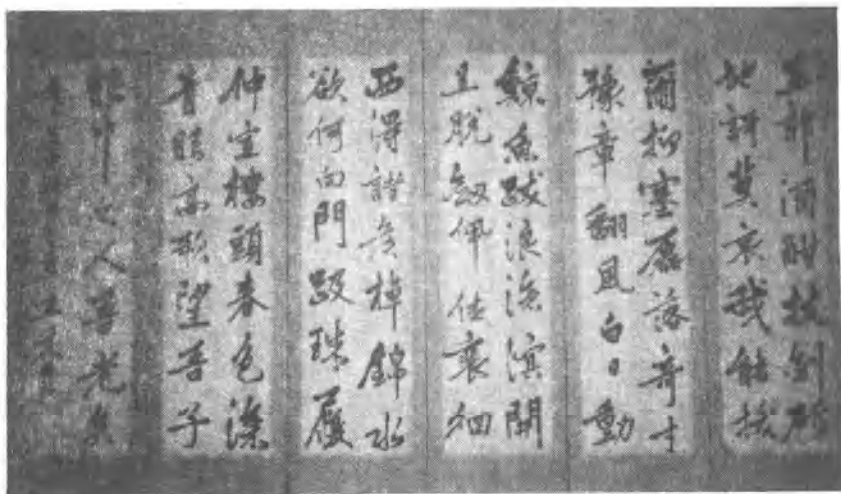 王郎酒酣拔劍斫
地歌莫哀我能拔
爾抑塞磊落奇才
豫章翻風白日動
鯨魚跋浪滄溟開
且脫劍佩休裵佪
西得諸矦棹錦水
欲何向門趿珠履
仲宣樓頭春色深
青眼高歌望吾子
眼中之人吾老矣